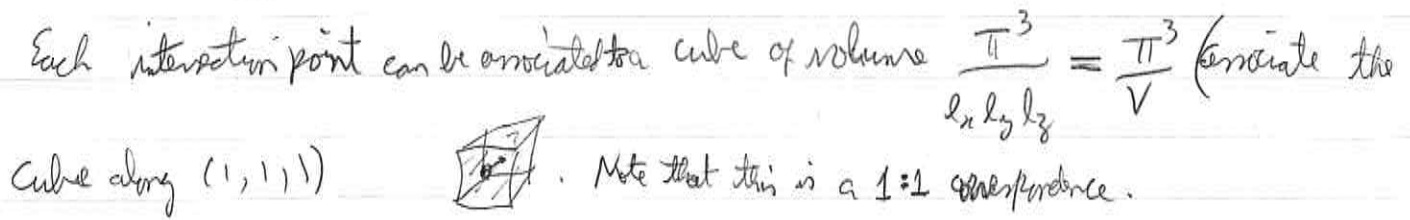 Each intersection point can be associated to a cube of volume π³/(lx ly lz) = π³/V (associate the
cube along (1,1,1) . Note that this is a 1:1 correspondence.